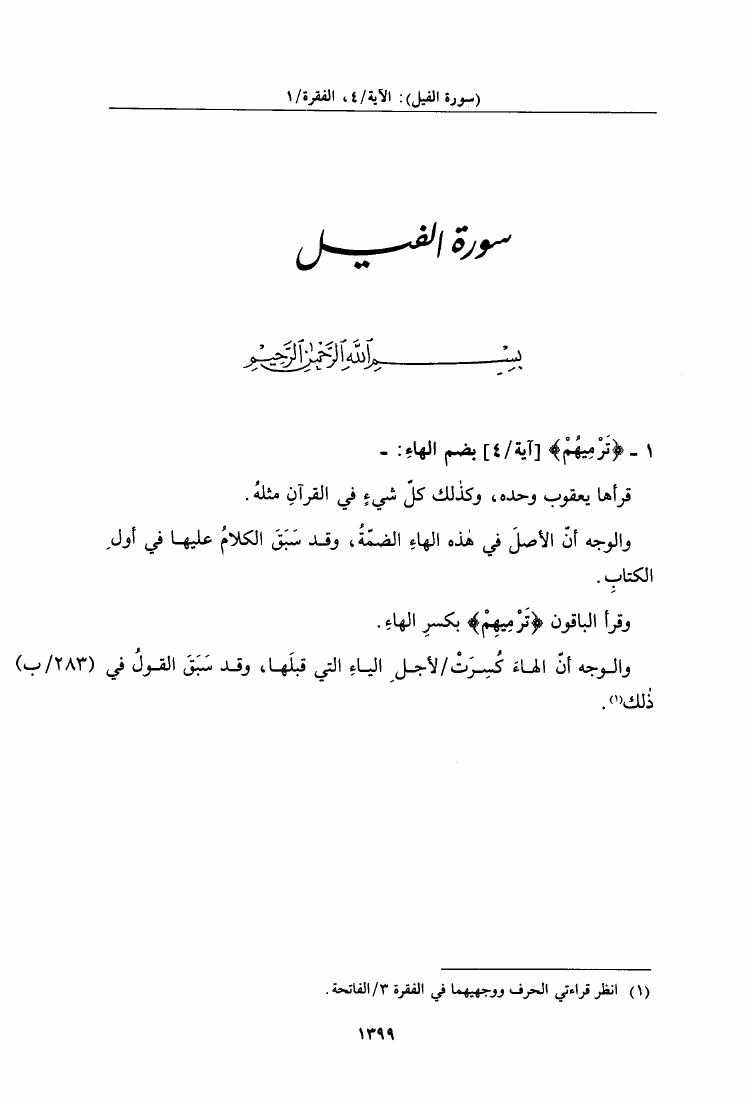 (سورة الفيل): الآية/٤، الفقرة/١
سورة الفيـــل
بِسْـــــــمِ ٱللَّهِ ٱلرَّحْمَٰنِ ٱلرَّحِيمِ
١ ـ ﴿تَرْمِيهُمْ﴾ [آية/٤] بضم الهاءِ: ـ
قرأها يعقوب وحده، وكذٰلك كلّ شيءٍ في القرآنِ مثلهُ.
والوجه أنّ الأصلَ في هٰذه الهاءِ الضمّةُ، وقـد سَبَقَ الكلامُ عليهـا في أولِ
الكتابِ.
وقرأ الباقون ﴿تَرْمِيهِمْ﴾ بكسرِ الهاءِ.
والـوجه أنّ الهـاءَ كُسِـرَتْ/لأجـلِ اليـاءِ التي قبلَهـا، وقـد سَبَقَ القـولُ في (٢٨٣/ب)
ذٰلك(١).
(١) انظر قراءتي الحرف ووجهيهما في الفقرة ٣/الفاتحة.
١٣٩٩